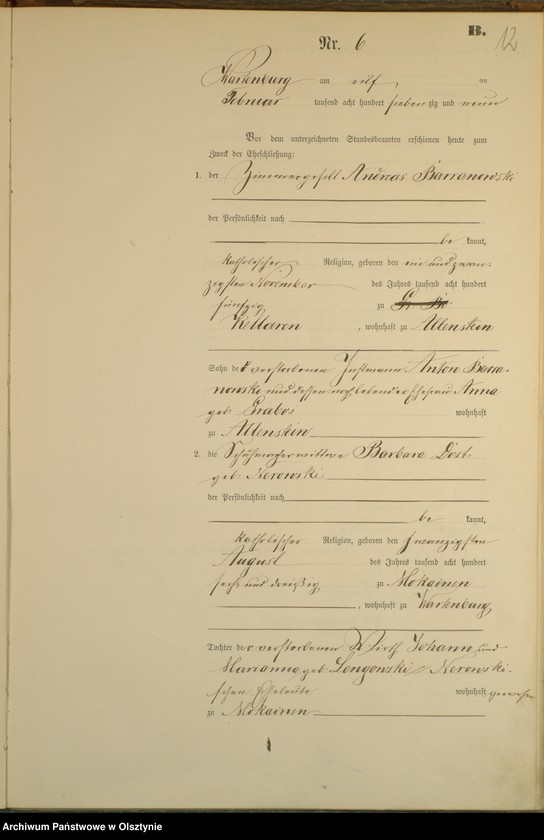 B.
12
Nr. 6
Wartenburg am eilf ten
Februar tausend acht hundert siebenzig und neun
Vor dem unterzeichneten Standesbeamten erschienen heute zum
Zweck der Eheschließung:
1. der Zimmergesell Andreas Barranowski
der Persönlichkeit nach
be kannt,
katholischer Religion, geboren den ein und zwan-
zigsten November des Jahres tausend acht hundert
fünfzig zu
Kellaren, wohnhaft zu Allenstein
Sohn des verstorbenen Instmann Anton Barra-
nowski und dessen noch lebender Ehefrau Anna
geb. Grabos wohnhaft
zu Allenstein
2. die Schuhmacherwittwe Barbara Dost
geb. Nerowski
der Persönlichkeit nach
be kannt,
katholischer Religion, geboren den zwanzigsten
August des Jahres tausend acht hundert
sechs und dreißig zu Mokainen
, wohnhaft zu Wartenburg
Tochter der verstorbenen Wirth Johann und
Marianna geb. Lengowski Nerowski-
schen Eheleute wohnhaft gewesen
zu Mokainen
Archiwum Państwowe w Olsztynie